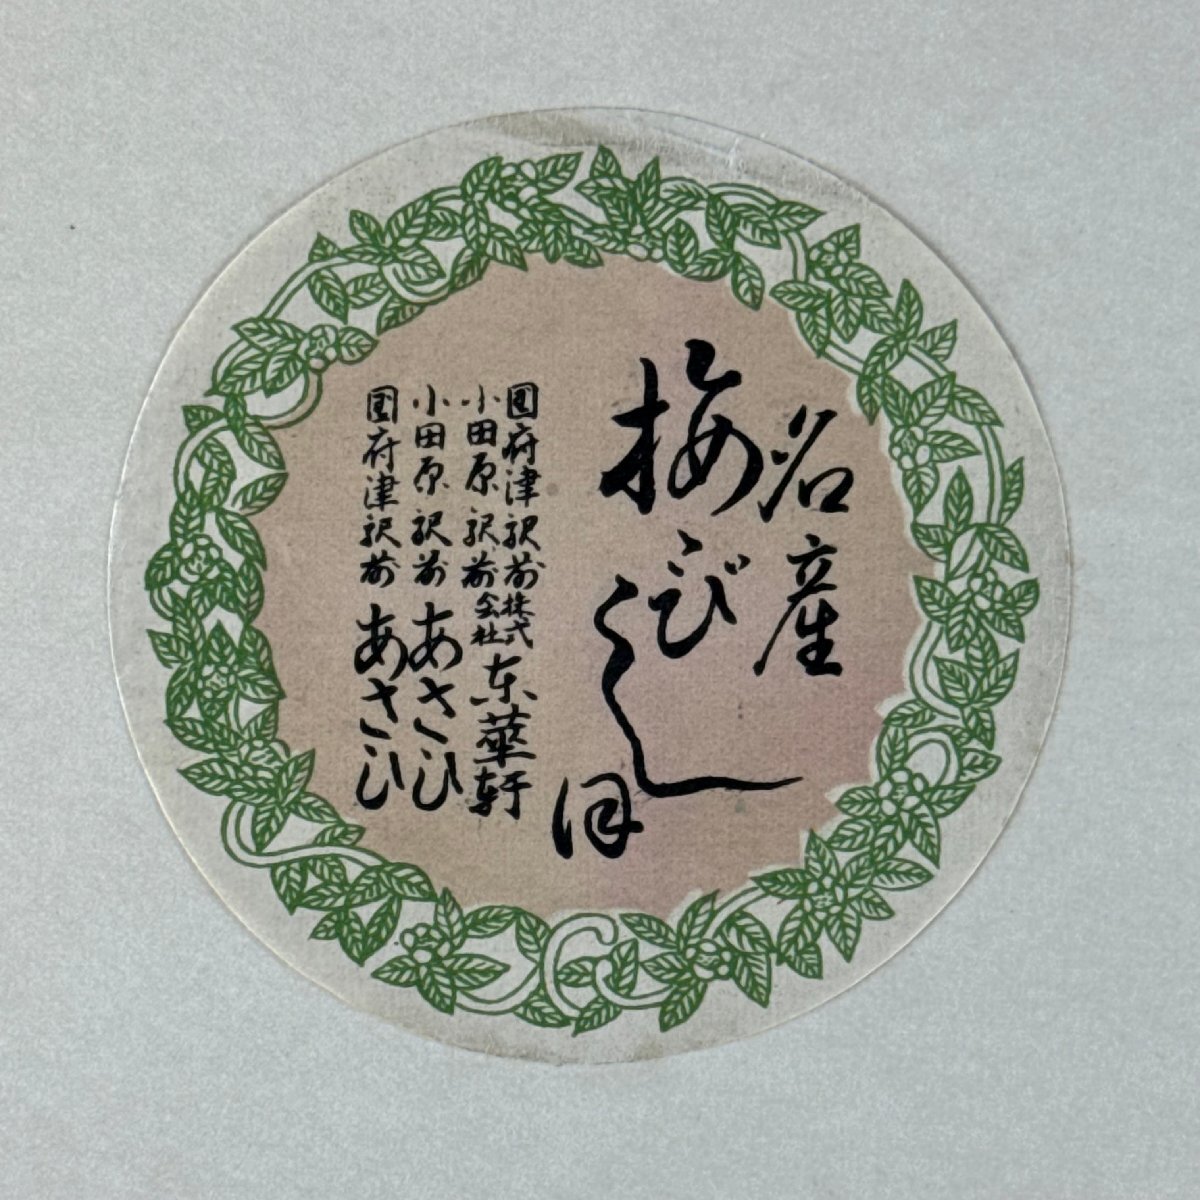 名産
梅びしほ
國府津駅前
小田原駅前
株式会社
東華軒
小田原駅前 あさひ
國府津駅前 あさひ